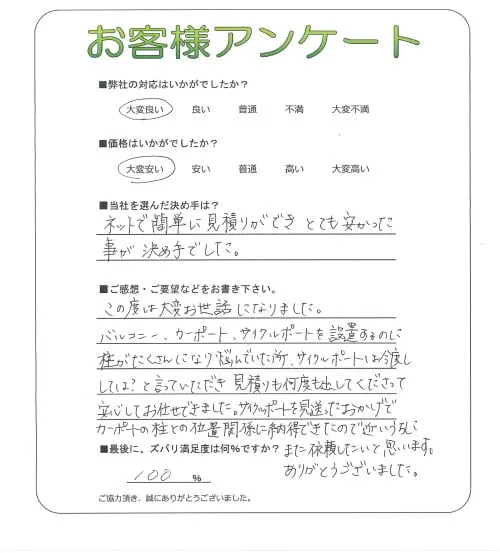 お客様アンケート
■弊社の対応はいかがでしたか？
大変良い 良い 普通 不満 大変不満
■価格はいかがでしたか？
大変安い 安い 普通 高い 大変高い
■当社を選んだ決め手は？
ネットで簡単に見積りができ とても安かった
事が決め手でした。
■ご感想・ご要望などをお書き下さい。
この度は大変お世話になりました。
バルコニー、カーポート、サイクルポートを設置するのに
柱がたくさんになり悩んでいた所、サイクルポートは今度に
しては？と言っていただき 見積りも何度も出してくださって
安心してお任せできました。サイクルポートを見送ったおかげで
カーポートの柱との位置関係に納得できたので
また依頼したいと思います。
ありがとうございました。
■最後に、ズバリ満足度は何％ですか？
100 ％
ご協力頂き、誠にありがとうございました。